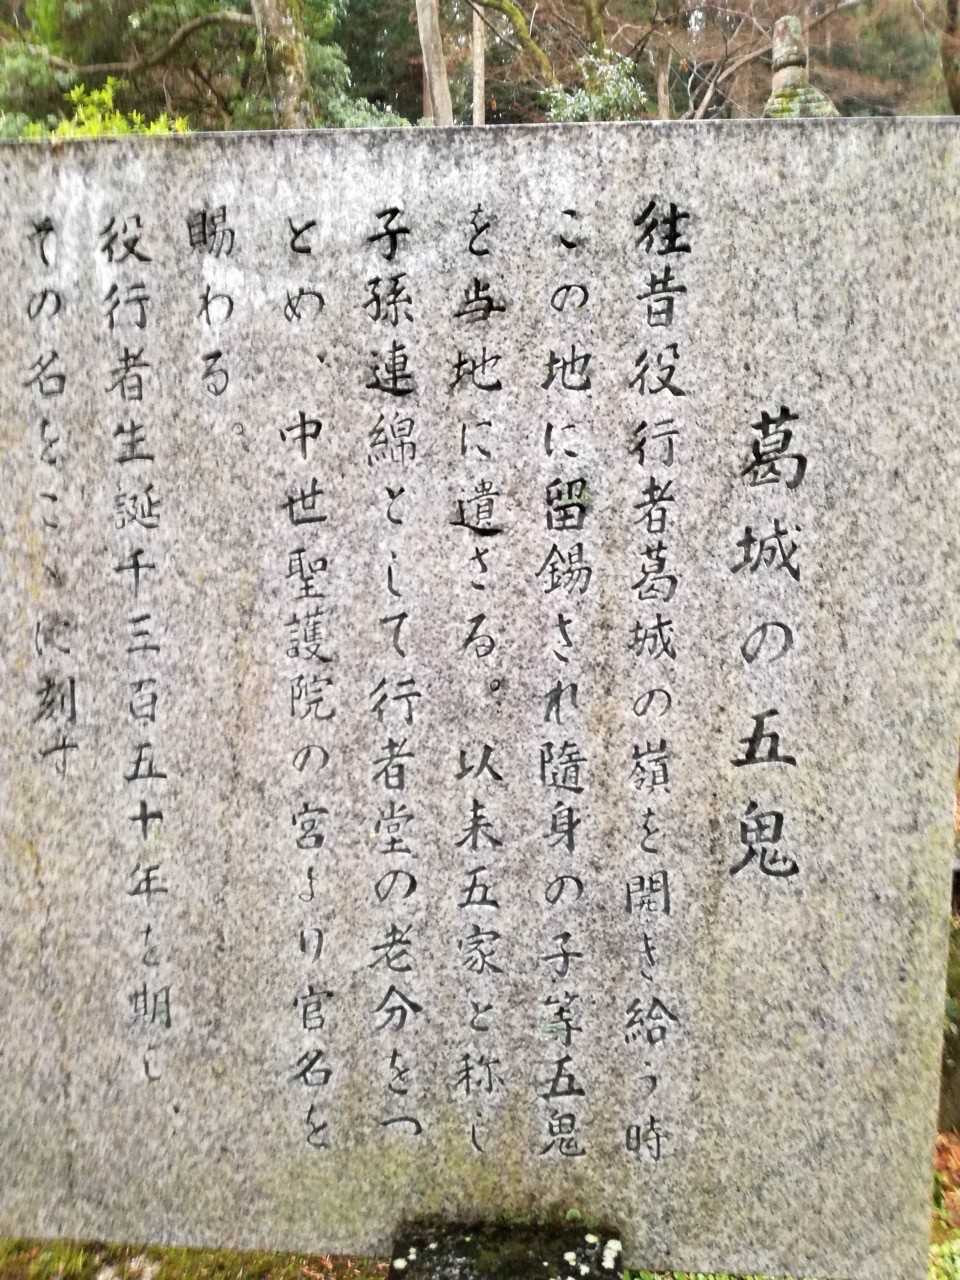 葛城の五鬼
往昔役行者葛城の嶺を開き給う時
この地に留錫され隨身の子等五鬼
を与地に遺さる。以来五家と称し
子孫連綿として行者堂の老分をつ
とめ、中世聖護院の宮より官名を
賜わる。
役行者生誕千三百五十年を期し
その名をこゝに刻す